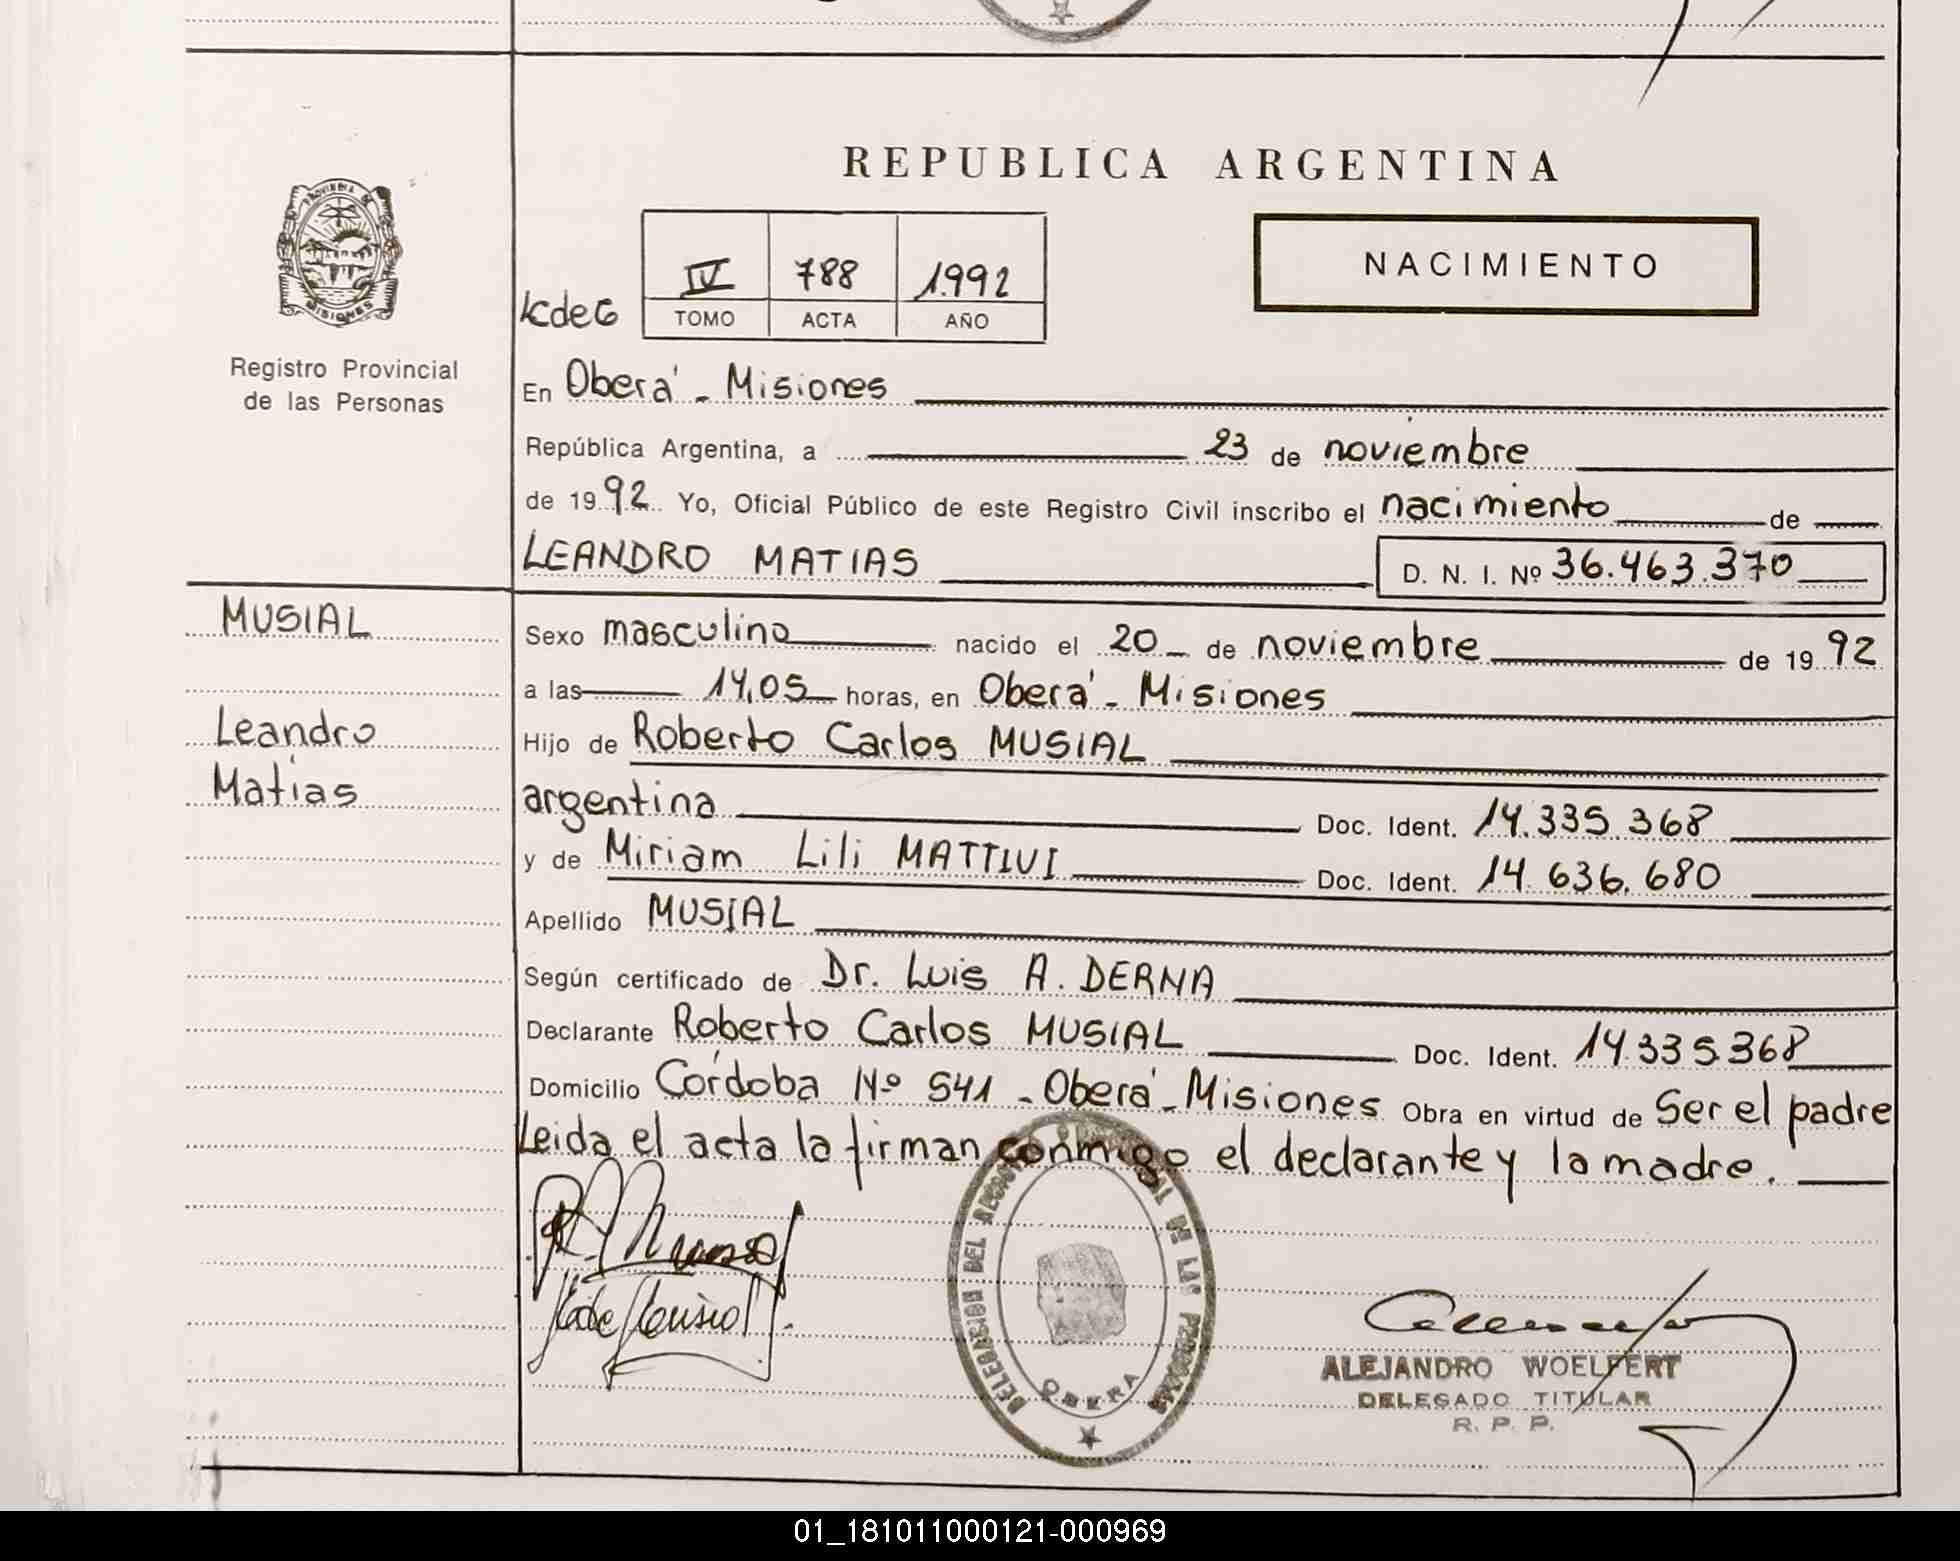 REPUBLICA ARGENTINA
PROVINCIA DE MISIONES
Registro Provincial
de las Personas
IV 788 1.992
TOMO ACTA AÑO
NACIMIENTO
En Oberá - Misiones
República Argentina, a 23 de noviembre
de 1992 Yo, Oficial Público de este Registro Civil inscribo el nacimiento de
LEANDRO MATIAS D. N. I. Nº 36.463.370
MUSIAL
Leandro
Matías
Sexo masculino nacido el 20 de noviembre de 1992
a las 14,05 horas, en Oberá - Misiones
Hijo de Roberto Carlos MUSIAL
argentina Doc. Ident. 14.335.368
y de Miriam Lili MATTIVI Doc. Ident. 14.636.680
Apellido MUSIAL
Según certificado de Dr. Luis A. DERNA
Declarante Roberto Carlos MUSIAL Doc. Ident. 14.335.368
Domicilio Córdoba Nº 541 - Oberá - Misiones Obra en virtud de Ser el padre
Leida el acta la firman conmigo el declarante y la madre.
DELEGACION DEL REGISTRO PROVINCIAL DE LAS PERSONAS
OBERA
ALEJANDRO WOELFERT
DELEGADO TITULAR
R. P. P.
01_181011000121-000969